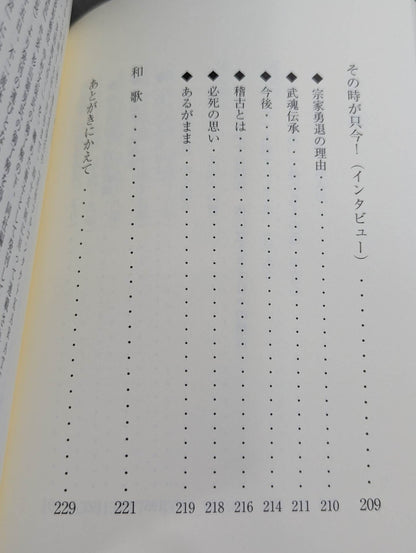 その時が只今！（インタビュー）・・・・・・・・・・・・209
◆宗家勇退の理由・・・・・・・・・・・・・・・・・・210
◆武魂伝承・・・・・・・・・・・・・・・・・・・・211
◆今後・・・・・・・・・・・・・・・・・・・・・・214
◆稽古とは・・・・・・・・・・・・・・・・・・・・216
◆必死の思い・・・・・・・・・・・・・・・・・・・218
◆あるがまま・・・・・・・・・・・・・・・・・・・219
和歌・・・・・・・・・・・・・・・・・・・・・・・221
あとがきにかえて・・・・・・・・・・・・・・・・・229